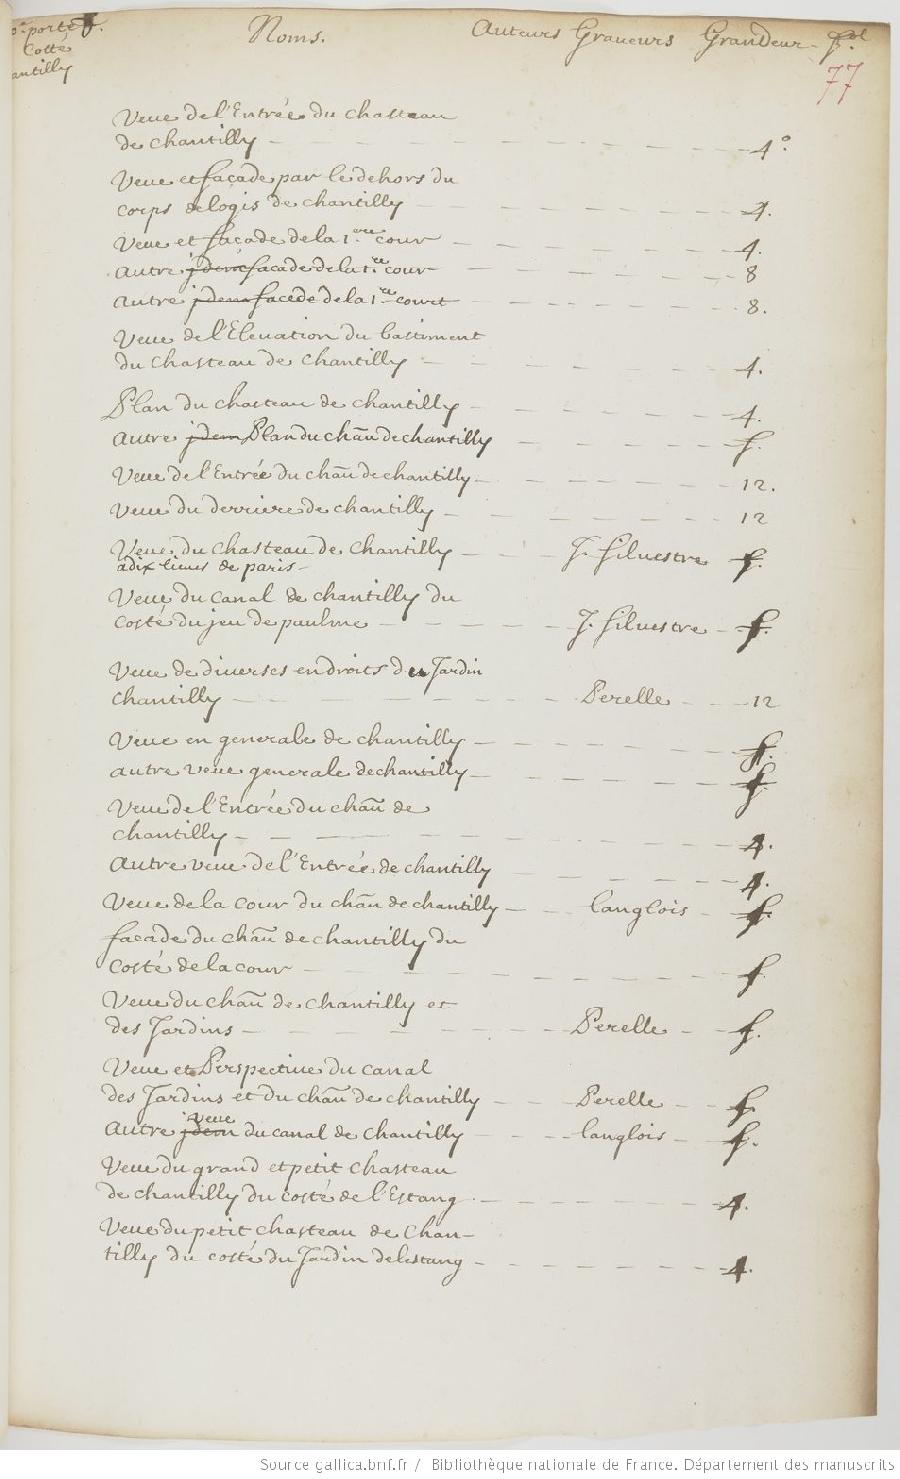 porte f.
Costé
antilly
Noms.
Auteurs Graveurs
Grandeur
fol
77
Veue de l'Entrée du chasteau
de chantilly
4.º
Veue et façade par le dehors du
corps de logis de chantilly
4.
Veue et façade de la 1.ere cour
4.
autre jdem façade de la 1.ere cour
8
autre jdem facede de la 1.ere cour
8.
Veue de l'Elevation du bastiment
du chasteau de chantilly
4.
Plan du chasteau de chantilly
4.
autre jdem Plan du chau de chantilly
f.
Veue de l'Entrée du chau de chantilly
12.
Veue du derriere de chantilly
12
Veue du chasteau de chantilly
J. Silvestre
f.
a dix lieues de paris
Veue du canal de chantilly du
costé du jeu de paulme
J. Silvestre
f.
Veue de diverses endroits du Jardin
chantilly
Perelle
12
Veue en generale de chantilly
f.
autre veue generale de chantilly
f
Veue de l'Entrée du chau de
chantilly
4.
Autre veue de l'Entrée de chantilly
4.
Veue de la cour du chau de chantilly
langlois
f.
façade du chau de chantilly du
costé de la cour
f
Veue du chau de chantilly et
des Jardins
Perelle
f.
Veue et Perspective du canal
des Jardins et du chau de chantilly
Perelle
f
veue
autre jdem du canal de chantilly
langlois
f.
Veue du grand et petit chasteau
de chantilly du costé de l'Estang
4.
Veue du petit chasteau de Chan-
tilly du costé du Jardin de lestang
4.
Source gallica.bnf.fr / Bibliothèque nationale de France. Département des manuscrits